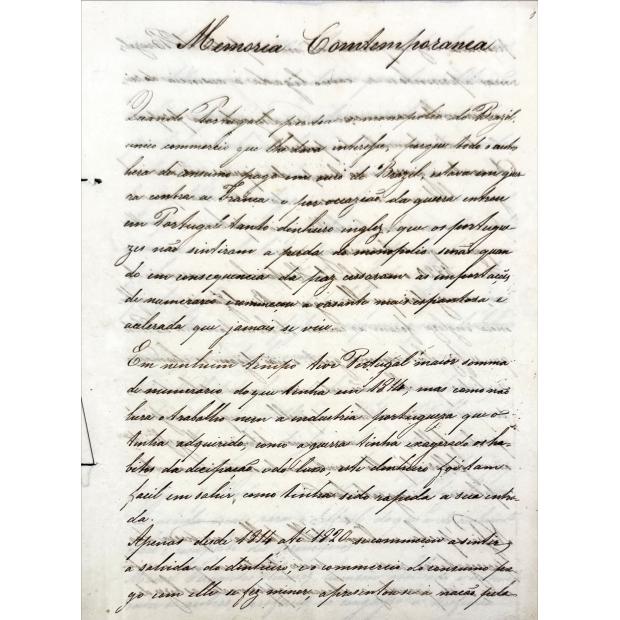 Memoria Comtemporanea
Quando Portugal perdeu o monopolio do Brazil,
unico commercio que lhe dava interesse, porque todo o outro
hera de consumo pago em oiro do Brazil, estava em guer
ra contra a Franca e por occazião da guerra entrou
em Portugal tanto dinheiro inglez que os portugue
zes não sintiram a perda do monopolio senão quan
do em consequencia da paz cessaram as importações
de numerario e começou a vasante mais espantosa e
acelerada que jamais se viu.
Em nenhum tempo teve Portugal maior somma
de numerario do que tinha em 1814, mas como não
hera o trabalho nem a industria portugueza que o
tinha adquirido, como a guerra tinha exagerado os ha
bitos da decipação e do luxo, este dinheiro foi tam
facil em sahir, como tinha sido rapida a sua entra
da.
Apenas desde 1814 até 1820 se começou a sintir
a sahida do dinheiro, e o commercio de consumo pa
go com elle se fez menor, apresentou-se a nação pela